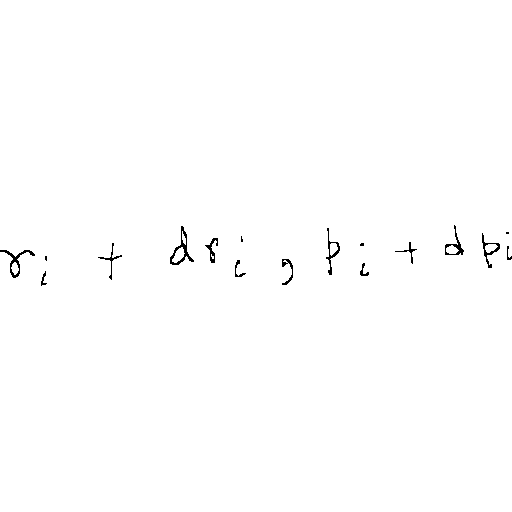 r_i + dr_i , p_i + dp_i